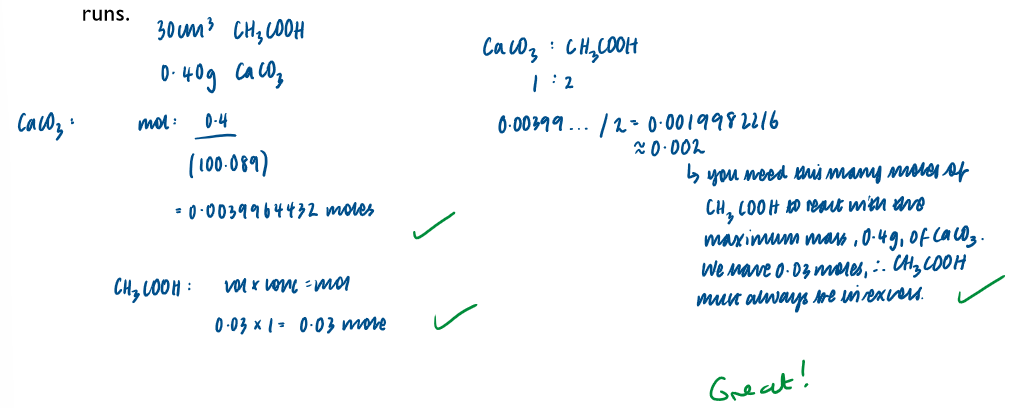 runs.
30cm³ CH₃COOH
0.40g CaCO₃
CaCO₃ : mol: 0.4
(100.089)
= 0.0039964432 moles
CH₃COOH : vol x conc = mol
0.03 x 1 = 0.03 mole
CaCO₃ : CH₃COOH
1 : 2
0.00399... / 2 = 0.0019982216
≈ 0.002
↳ you need this many moles of
CH₃COOH to react with the
maximum mass, 0.4g, of CaCO₃.
We have 0.03 moles, ∴ CH₃COOH
must always be in excess.
Great!